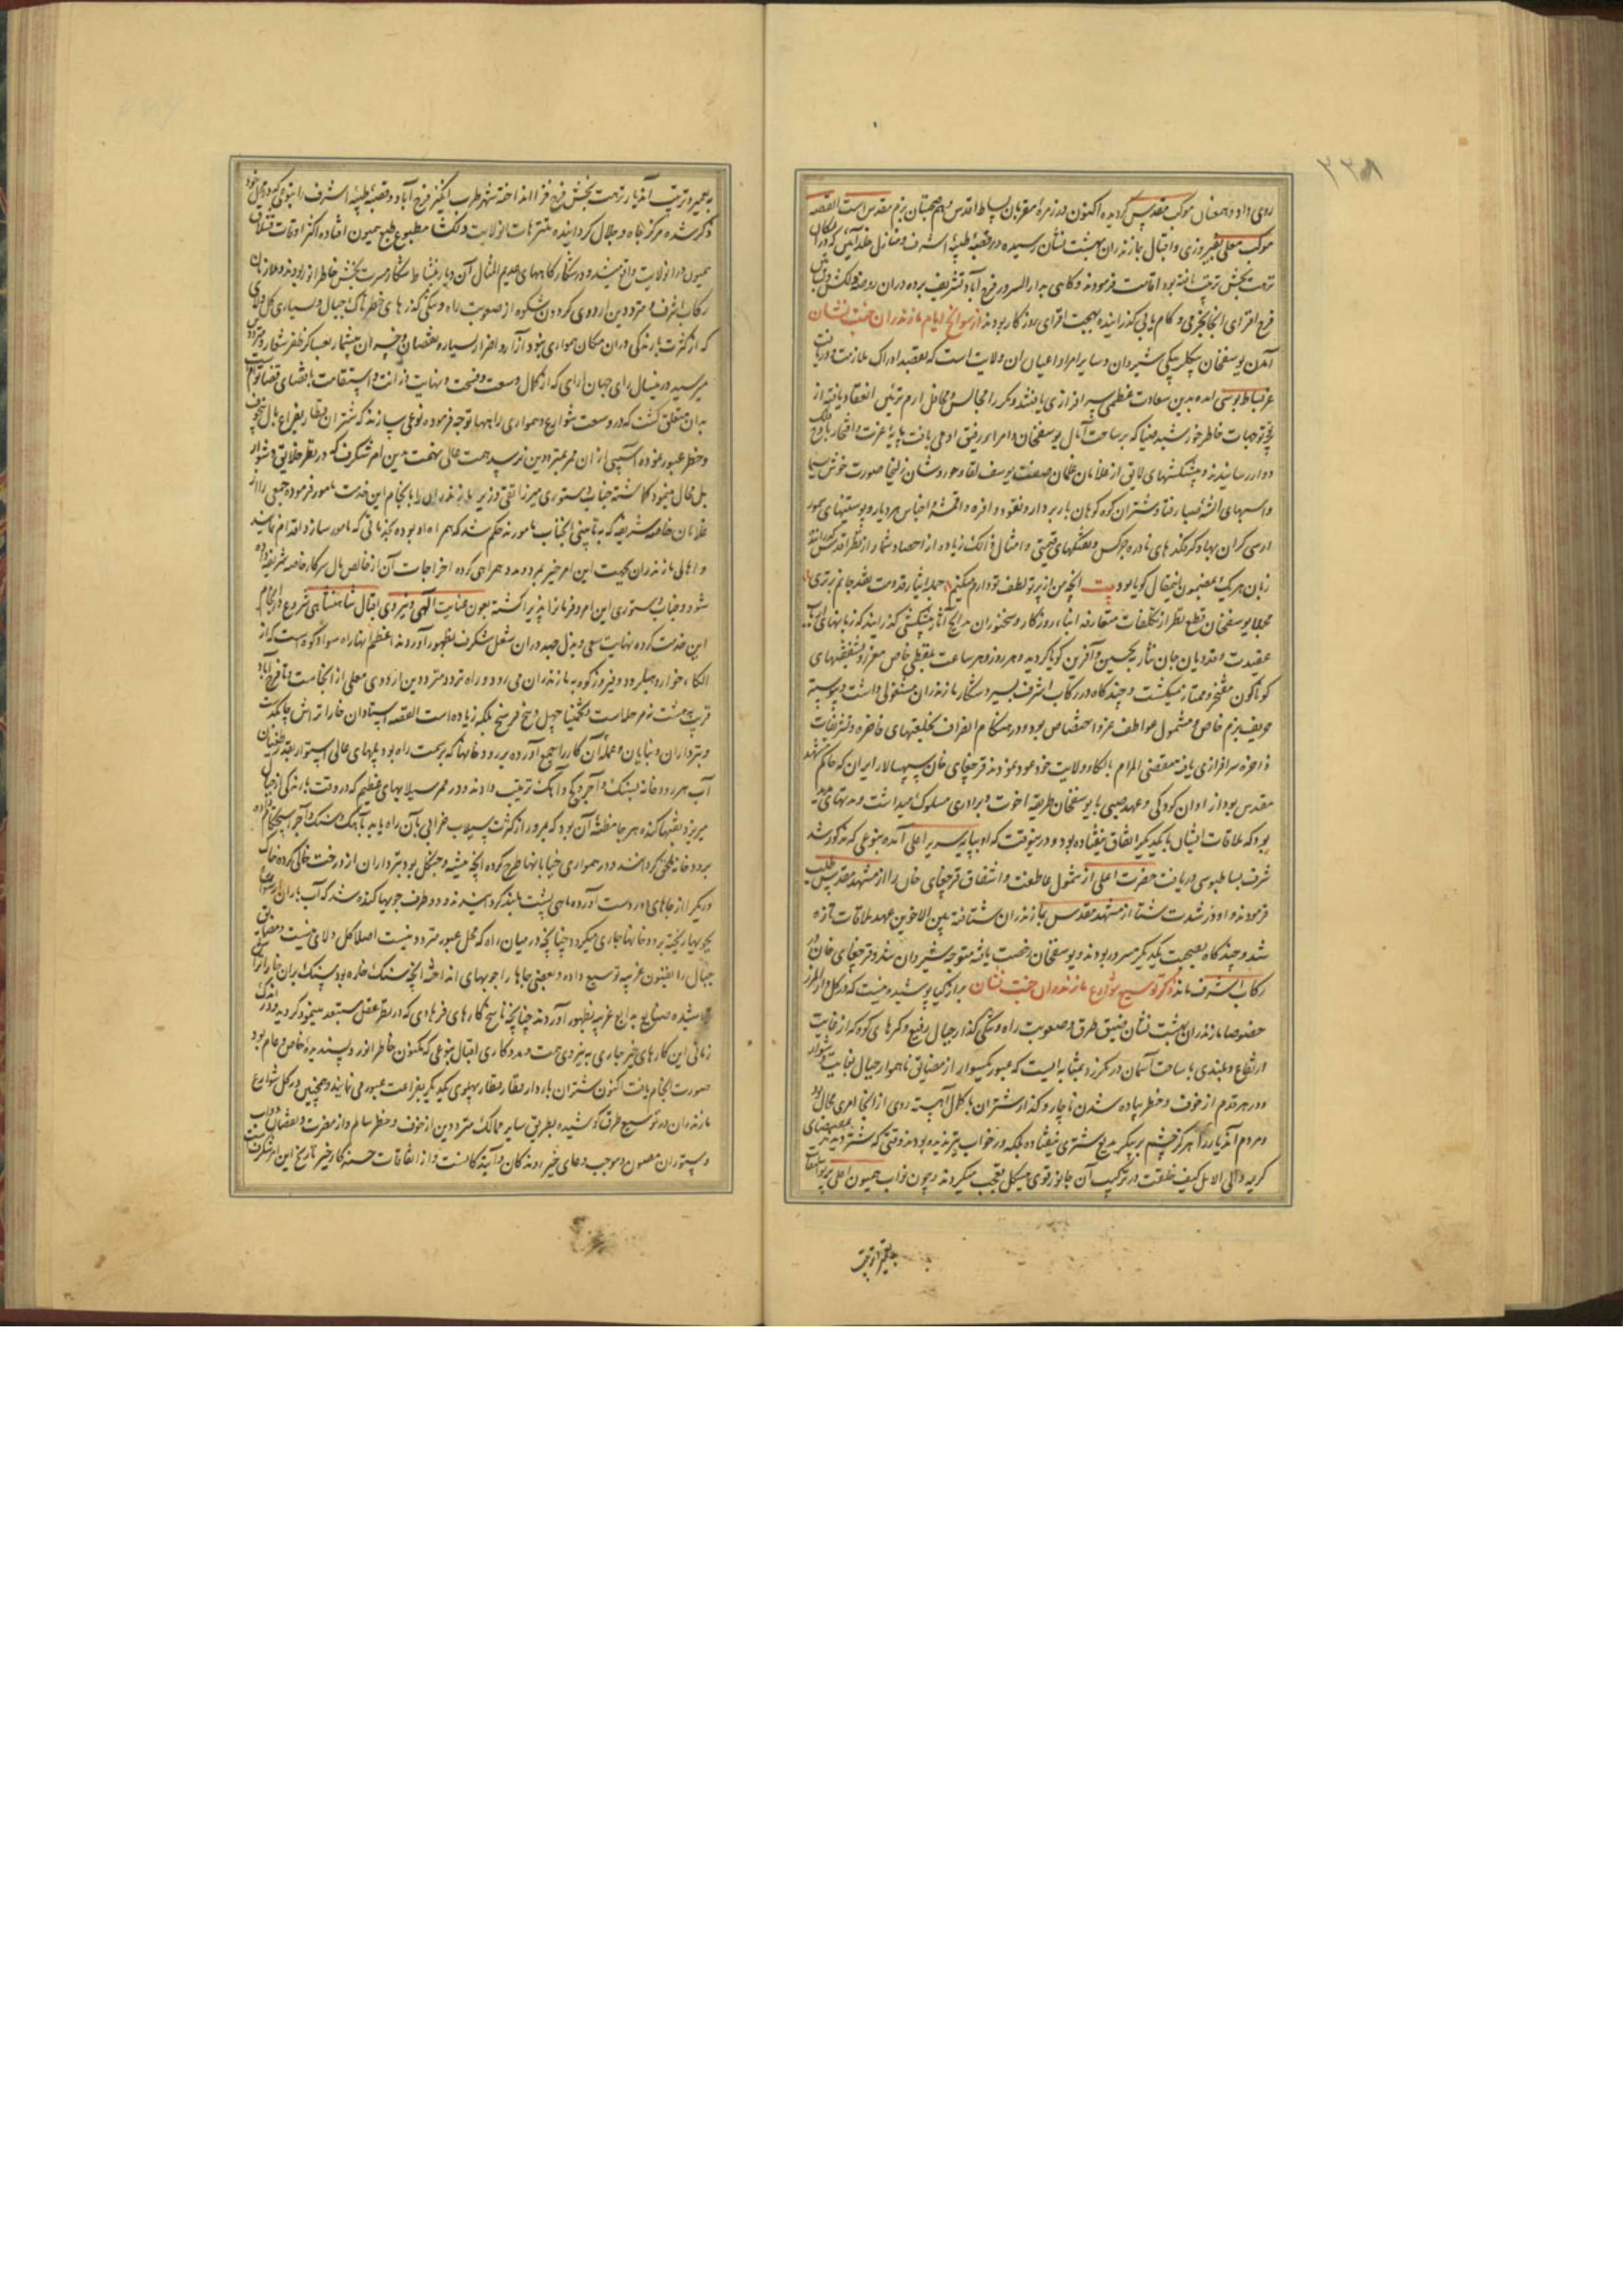 ۲۳۸
روی داد و همعنان موکب مقدس گردیده اکنون در زمرهٔ مقربان بساط اقدس و هم صحبتان بزم مقدس است القصه
موکب معلی بفیروزی و اقبال بمازندران بهشت نشان رسیده در قصبهٔ طیبهٔ اشرف و منازل خلد آیین که در آن مکان
نزهت بخش ترتیب یافته بود اقامت فرمودند و گاهی بدار السرور فرح آباد تشریف برده در آن روضهٔ دلکش و بساتین
فرح افزای آنجا بخرمی و کام یابی گذرانیده بهجت افزای روزگار بودند از سوانح ایام مازندران جنت نشان
آمدن یوسفخان بیگلربیگی شیروان و سایر امرا و اعیان آن ولایت است که بقصد ادراک ملازمت و دریافت
عز بساط بوسی آمده بدین سعادت عظمی سرافرازی یافتند و مکرر مجالس و محافل ارم تزئین انعقاد یافته از
توجهات خاطر خورشید ضیا که بر ساحت آمال یوسفخان و امراء رفیق او می یافت پایهٔ عزت و افتخار باوج
دوار رسانیدند و پیشکشهای لایق از غلامان غلمان صفت یوسف لقا و حوروشان زلیخا صورت خوش سیما
و اسبهای صبا رفتار و شتران کوه کوهان باربردار و نقود وافره و اقمشه و اجناس هر دیار و پوستینهای سمور
ارسی گران بها و کرکهای نادره چرکس و تفنگهای قیمتی و امثال ذالک زیاده از احصا و شمار از نظر اقدس گذرانیده
زبان هر یک بمضمون اینمقال گویا بود بیت آنچه من از پرتو لطف تو دارم میکنم جمله ایثار قدومت نقد جانم بر سری
مجملا یوسفخان قطع نظر از تکلفات متعارفه ابناء روزگار و سخنوران مدایح آثار پیشکشی گذرانید که زبانهای ارباب
عقیدت و فدویان جان نثار بتحسین و آفرین گویا گردید و هر روز و هر ساعت بلفظی خاص معزز و بشفقتهای
گوناگون مفتخر و ممتاز میگشت و چند گاه در رکاب اشرف بسیر و شکار مازندران مشغولی داشت و پیوسته
حریف بزم خاص و مشمول عواطف عز و اختصاص بود و در هنگام انصراف بخلعتهای فاخره و تشریفات
زاخره سرافرازی یافته مقضی المرام بالکاء و ولایت خود عود نمودند قرجغای خان سپهسالار ایران که حاکم مشهد
مقدس بود از اوان کودکی و عهد صبی با یوسفخان طریقه اخوت و برادری مسلوک میداشت و مدتهای مدید
بود که ملاقات ایشان با یکدیگر اتفاق نیفتاده بود و درینوقت که او بپایه سریر اعلی آمده بنوعی که مذکور شد
شرف بساط بوسی دریافت حضرت اعلی از شمول عاطفت و اشفاق قرجغای خان را از مشهد مقدس طلب
فرمودند و او در شدت شتا از مشهد مقدس بمازندران شتافته بین الاخوین عهد ملاقات تازه
شد و چند گاه بصحبت یکدیگر مسرور بودند و یوسفخان رخصت یافته متوجه شیروان شد و قرجغای خان در
رکاب اشرف ماند ذکر توسیع شوارع مازندران جنت نشان بر ارکیا پوشیده نیست که در کل دار المرز
خصوصا مازندران بهشت نشان ضیق طرق و صعوبت راه و تنگی گذار جبال رفیع و کمرهای کوه که از غایت
ارتفاع و بلندی با ساحت آسمان در کمر زد بمثابه ایست که عبور یکسوار از مضایق ناهموار جبال بغایت دشوار
و در هر قدم از خوف و خطر پیاده شدن ناچار و گذار شتران با کل آهسته روی از آنجا امری محال بود
و مردم آندیار را هرگز چشم بر پیکر بدیع شتری نیفتاده بلکه در خواب نیز ندیده بودند وقتی که شتر دیدند بمقتضای
کریمه و الی الابل کیف خلقت در ترکیب آن جانور قوی هیکل تعجب میکردند و چون نواب همیون اعلی پرتو التفات
بتعمیر و ترتیب
بتعمیر و ترتیب آندیار نزهت بخش فرح فزا انداخته شهر طرب انگیز فرح آباد و قصبهٔ طیبه اشرف را بنوعی که در محل خود
ذکر شده مرکز جاه و جلال گردانیده متنزهات آنولایت دلگشا مطبوع طبع همیون افتاده اکثر اوقات قشلاق
همیون در آنولایت واقع میشد و در شکارگاههای عدیم المثال آن دیار بنشاط شکار مسرت بخش خاطر انور بودند و ملازمان
رکاب اشرف و مترددین اردوی گردون شکوه از صعوبت راه و تنگی گذرهای خطرناک جبال و بسیاری گل و لای
که از کثرت بارندگی در آن مکان همواری بنود آزار و اضرار بسیار و نقصان و خسران بیشمار بعساکر ظفر شعار و مترددین
میرسید درینسال رای جهان آرای که از کمال وسعت و فسحت و نهایت رزانت و استقامت با قضای قضا توأم است
بدان متعلق گشت که در وسعت شوارع و همواری راهها توجه فرموده نوعی سازند که شتران قطار بفراغ بال بیخوف
و خطر عبور نموده آسیبی از آن ممر بمترددین نرسید همت عالی نهمت بدین امر شگرف که در نظر خلایق دشوار
بل محال مینمود گماشته جناب دستوری میرزا تقی وزیر مازندران را بانجام این خدمت مامور فرموده جمعی را از
غلامان خاصه شریفه که بتابینی آنجناب مامورند حکم شد که همراه او بوده بخدماتی که مامور سازد اقدام نمایند
و اهالی مازندران بجهت این امر خیر مدد و همراهی کرده اخراجات آن از خالص مال سرکار خاصه شریفه داده
شود و جناب دستوری این امر و فرمانرا پذیرا گشته بعون عنایت الهی و نیروی اقبال شاهنشاهی شروع در انجام
این خدمت کرده نهایت سعی و بذل جهد در آن شغل شگرف بظهور آوردند اعظم آنها راه سواد کوه است که از
الکاء خوار و هبلرود و فیروزکوه بمازندران می رود و راه تردد مترددین اردوی معلی از آنجاست و تا فرح آباد
قریب به بیست مرحله است و تخمینا چهل و پنج فرسخ بلکه زیاده است القصه استادان خارا تراش چابکدست
و تبرداران و بنایان و عمله آن کار را جمع آورده بر رودخانها که بر سمت راه بود پلهای عالی استوار بقدر طغیان
آب هر رودخانه بسنگ و آجر و گچ و آهک ترتیب دادند و در ممر سیلابهای عظیم که در وقت بارندگی از جبال
میریزد نقبها کنده هر جا مظنهٔ آن بود که بمرور از کثرت سیلاب خرابی بآن راه یابد بآهک و سنگ و آجر استحکام داده
برودخانه ملحق گردانند و در همواری خیابانها طرح کرده آنچه بیشه و جنگل بود تبرداران از درخت خالی کرده خاک
و ریگ را از جاهای دوردست آورده ماهی پشت بلند گردانیدند و دو طرف جویها کنده شد که آب باران از آنها
بجویها ریخته برودخانها جاری میگردد چنانچه در میان راه که محل عبور مترددینست اصلا گل و لای نیست و مضایق
جبال را بفنون غریبه توسیع داده و بعضی جاها را چوبهای انداخته آنچه سنگ خاره بود سنگ بران خارا تراش
تراشیده صنایع بدایع غریبه بظهور آوردند چنانچه ناسخ کارهای فرهادی که در نظر عقل مستبعد مینمود گردید و در اندک
زمانی این کارهای خیر جاری بنیروی همت و مددکاری اقبال بنوعی که مکنون خاطر انور و پسندیدهٔ خاص و عام بود
صورت انجام یافت اکنون شتران باردار قطار قطار پهلوی یکدیگر بفراغت عبور می نمایند و همچنین در کل شوارع
مازندران در توسیع طرق کوشیده بطریق سایر ممالک مترددین از خوف و خطر سالم و از مضرت و نقصان دواب
و ستوران مصون و موجب دعای خیر اوندگان و آیندگانست و از اتفاقات حسنه کار خیر تاریخ این امر شگرف است